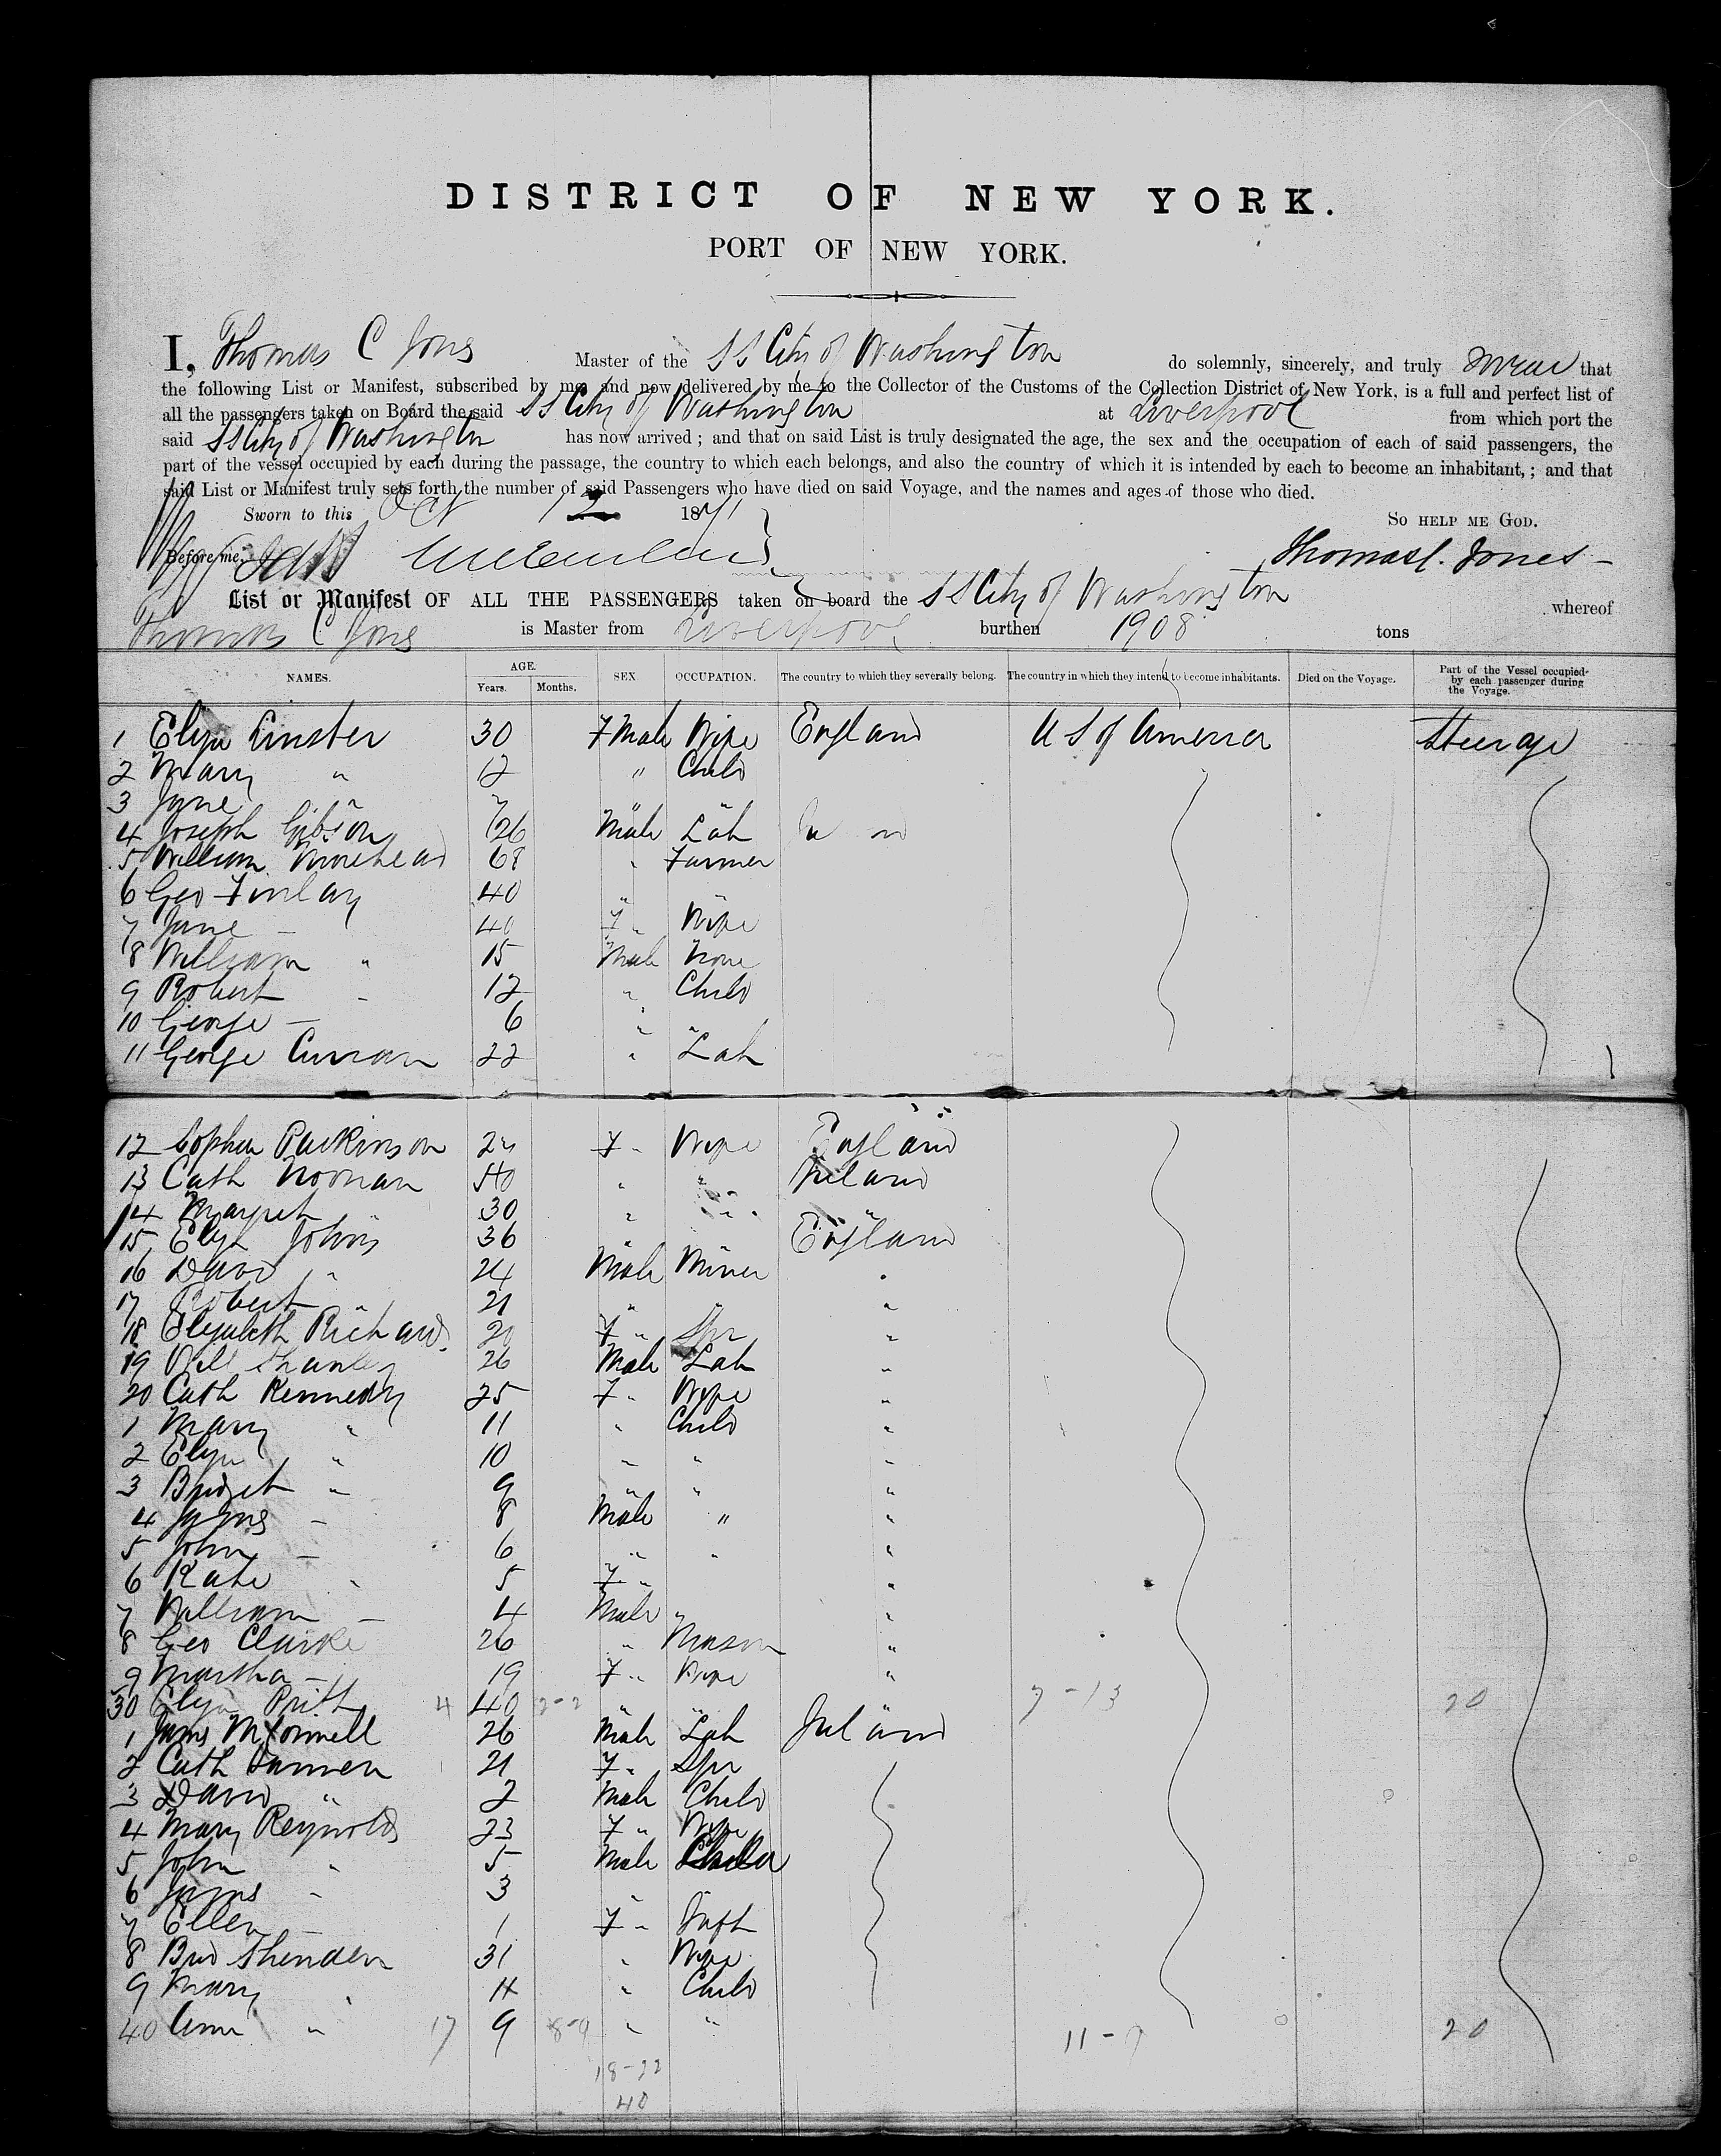 DISTRICT OF NEW YORK.
PORT OF NEW YORK.
I, Thomas C Jones Master of the SS City of Washington do solemnly, sincerely, and truly swear that
the following List or Manifest, subscribed by me and now delivered by me to the Collector of the Customs of the Collection District of New York, is a full and perfect list of
all the passengers taken on Board the said SS City of Washington at Liverpool from which port the
said SS City of Washington has now arrived ; and that on said List is truly designated the age, the sex and the occupation of each of said passengers, the
part of the vessel occupied by each during the passage, the country to which each belongs, and also the country of which it is intended by each to become an inhabitant, ; and that
said List or Manifest truly sets forth the number of said Passengers who have died on said Voyage, and the names and ages of those who died.
Sworn to this Oct 12 1871 So help me God.
Before me, Thomas C. Jones
List or Manifest OF ALL THE PASSENGERS taken on board the SS City of Washington whereof
Thomas C Jones is Master from Liverpool burthen 1908 tons
NAMES. AGE. Years. Months. SEX OCCUPATION. The country to which they severally belong. The country in which they intend to become inhabitants. Died on the Voyage. Part of the Vessel occupied by each passenger during the Voyage.
1 Eliza Linster 30 F Male Wife England U S of America Steerage
2 Mary " 12 " Child
3 Jane "
4 Joseph Gibson 26 Male Lab
5 William Moorhead 68 " Farmer
6 Geo Finlay 40 "
7 Jane - 40 F " Wife
8 William " 15 Male None
9 Robert - 12 " Child
10 George - 6 "
11 George Curran 22 " Lab
12 Sophia Parkinson F " Wife England
13 Cath Noonan " " Ireland
14 Margret 30 " "
15 Eliza Johns 36 England
16 David " 24 Male Miner "
17 Robert " 21 " " "
18 Elizabeth Richards 20 F " Spr "
19 Will Shanley 26 Male Lab "
20 Cath Kennedy 25 F " Wife "
1 Mary " 11 " Child "
2 Eliza " 10 " " "
3 Bridget " 9 " " "
4 James - 8 Male " "
5 John - 6 " " "
6 Kate " 5 F " "
7 William - 4 Male " "
8 Geo Clarke 26 " Mason "
9 Martha - 19 F " Wife "
30 Eliza Pritt 4 40 2-2 " " 7-13 20
1 James McConnell 26 Male Lab Ireland
2 Cath Farren 21 F " Spr
3 David " 2 Male Child
4 Mary Reynolds 23 F " Wife
5 John " 5 Male Child
6 James " 3 "
7 Ellen - 1 F " Inft
8 Brid Sheriden 31 " Wife
9 Mary " 11 " Child
40 Ann " 17 9 8-9 " " 11-9 20
18-22
40